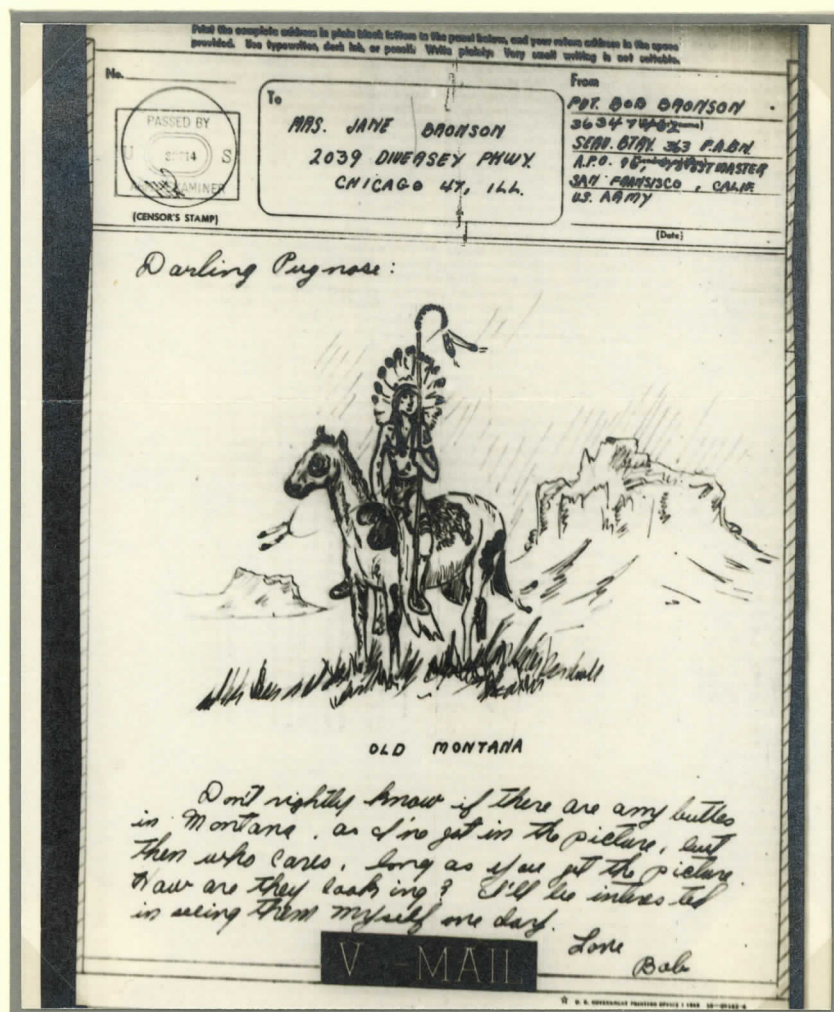 Print the complete address in plain block letters in the panel below, and your return address in the space
provided. Use typewriter, dark ink, or pencil. Write plainly. Very small writing is not suitable.
No.
PASSED BY
U S
ARMY EXAMINER
(CENSOR'S STAMP)
To
MRS. JANE BRONSON
2039 DIVERSEY PKWY.
CHICAGO 47, ILL.
From
PVT. BOB BRONSON
SERV. BTRY. 363 F.A.BN.
A.P.O. 96, POSTMASTER
SAN FRANSISCO, CALIF.
U.S. ARMY
(Date)
Darling Pugnose:
OLD MONTANA
Don't rightly know if there are any buttes
in Montana, as I've got in the picture, but
then who cares, long as you get the picture.
How are they looking? I'll be interested
in seeing them myself one day.
Love
Bob
V - MAIL
U. S. GOVERNMENT PRINTING OFFICE